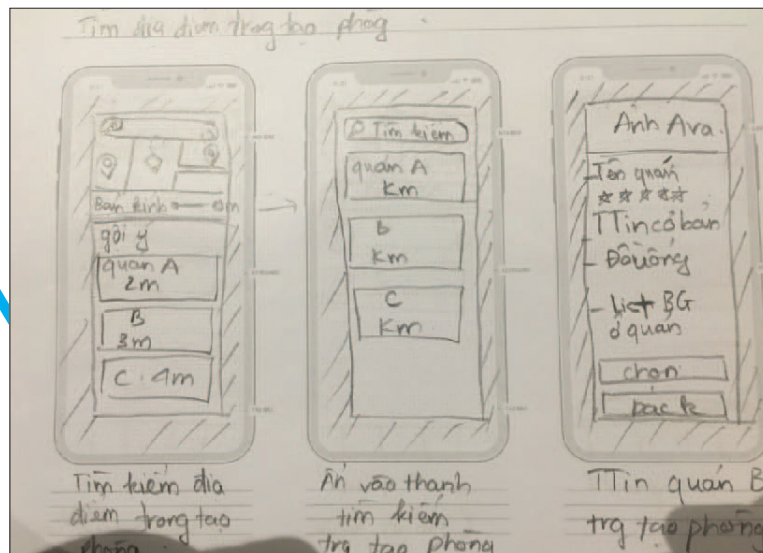 Tìm địa điểm trong tạo phòng
Bán kính
gợi ý
quán A
2m
B
3m
C. 4m
Tìm kiếm địa
điểm trong tạo
phòng
Tìm kiếm
quán A
Km
B
Km
C
Km
Ấn vào thanh
tìm kiếm
trg tạo phòng
Ảnh Ava
- Tên quán
TTin cơ bản
- Đồ uống
- List BG
ở quán
chọn
back
TTin quán B
trg tạo phòng